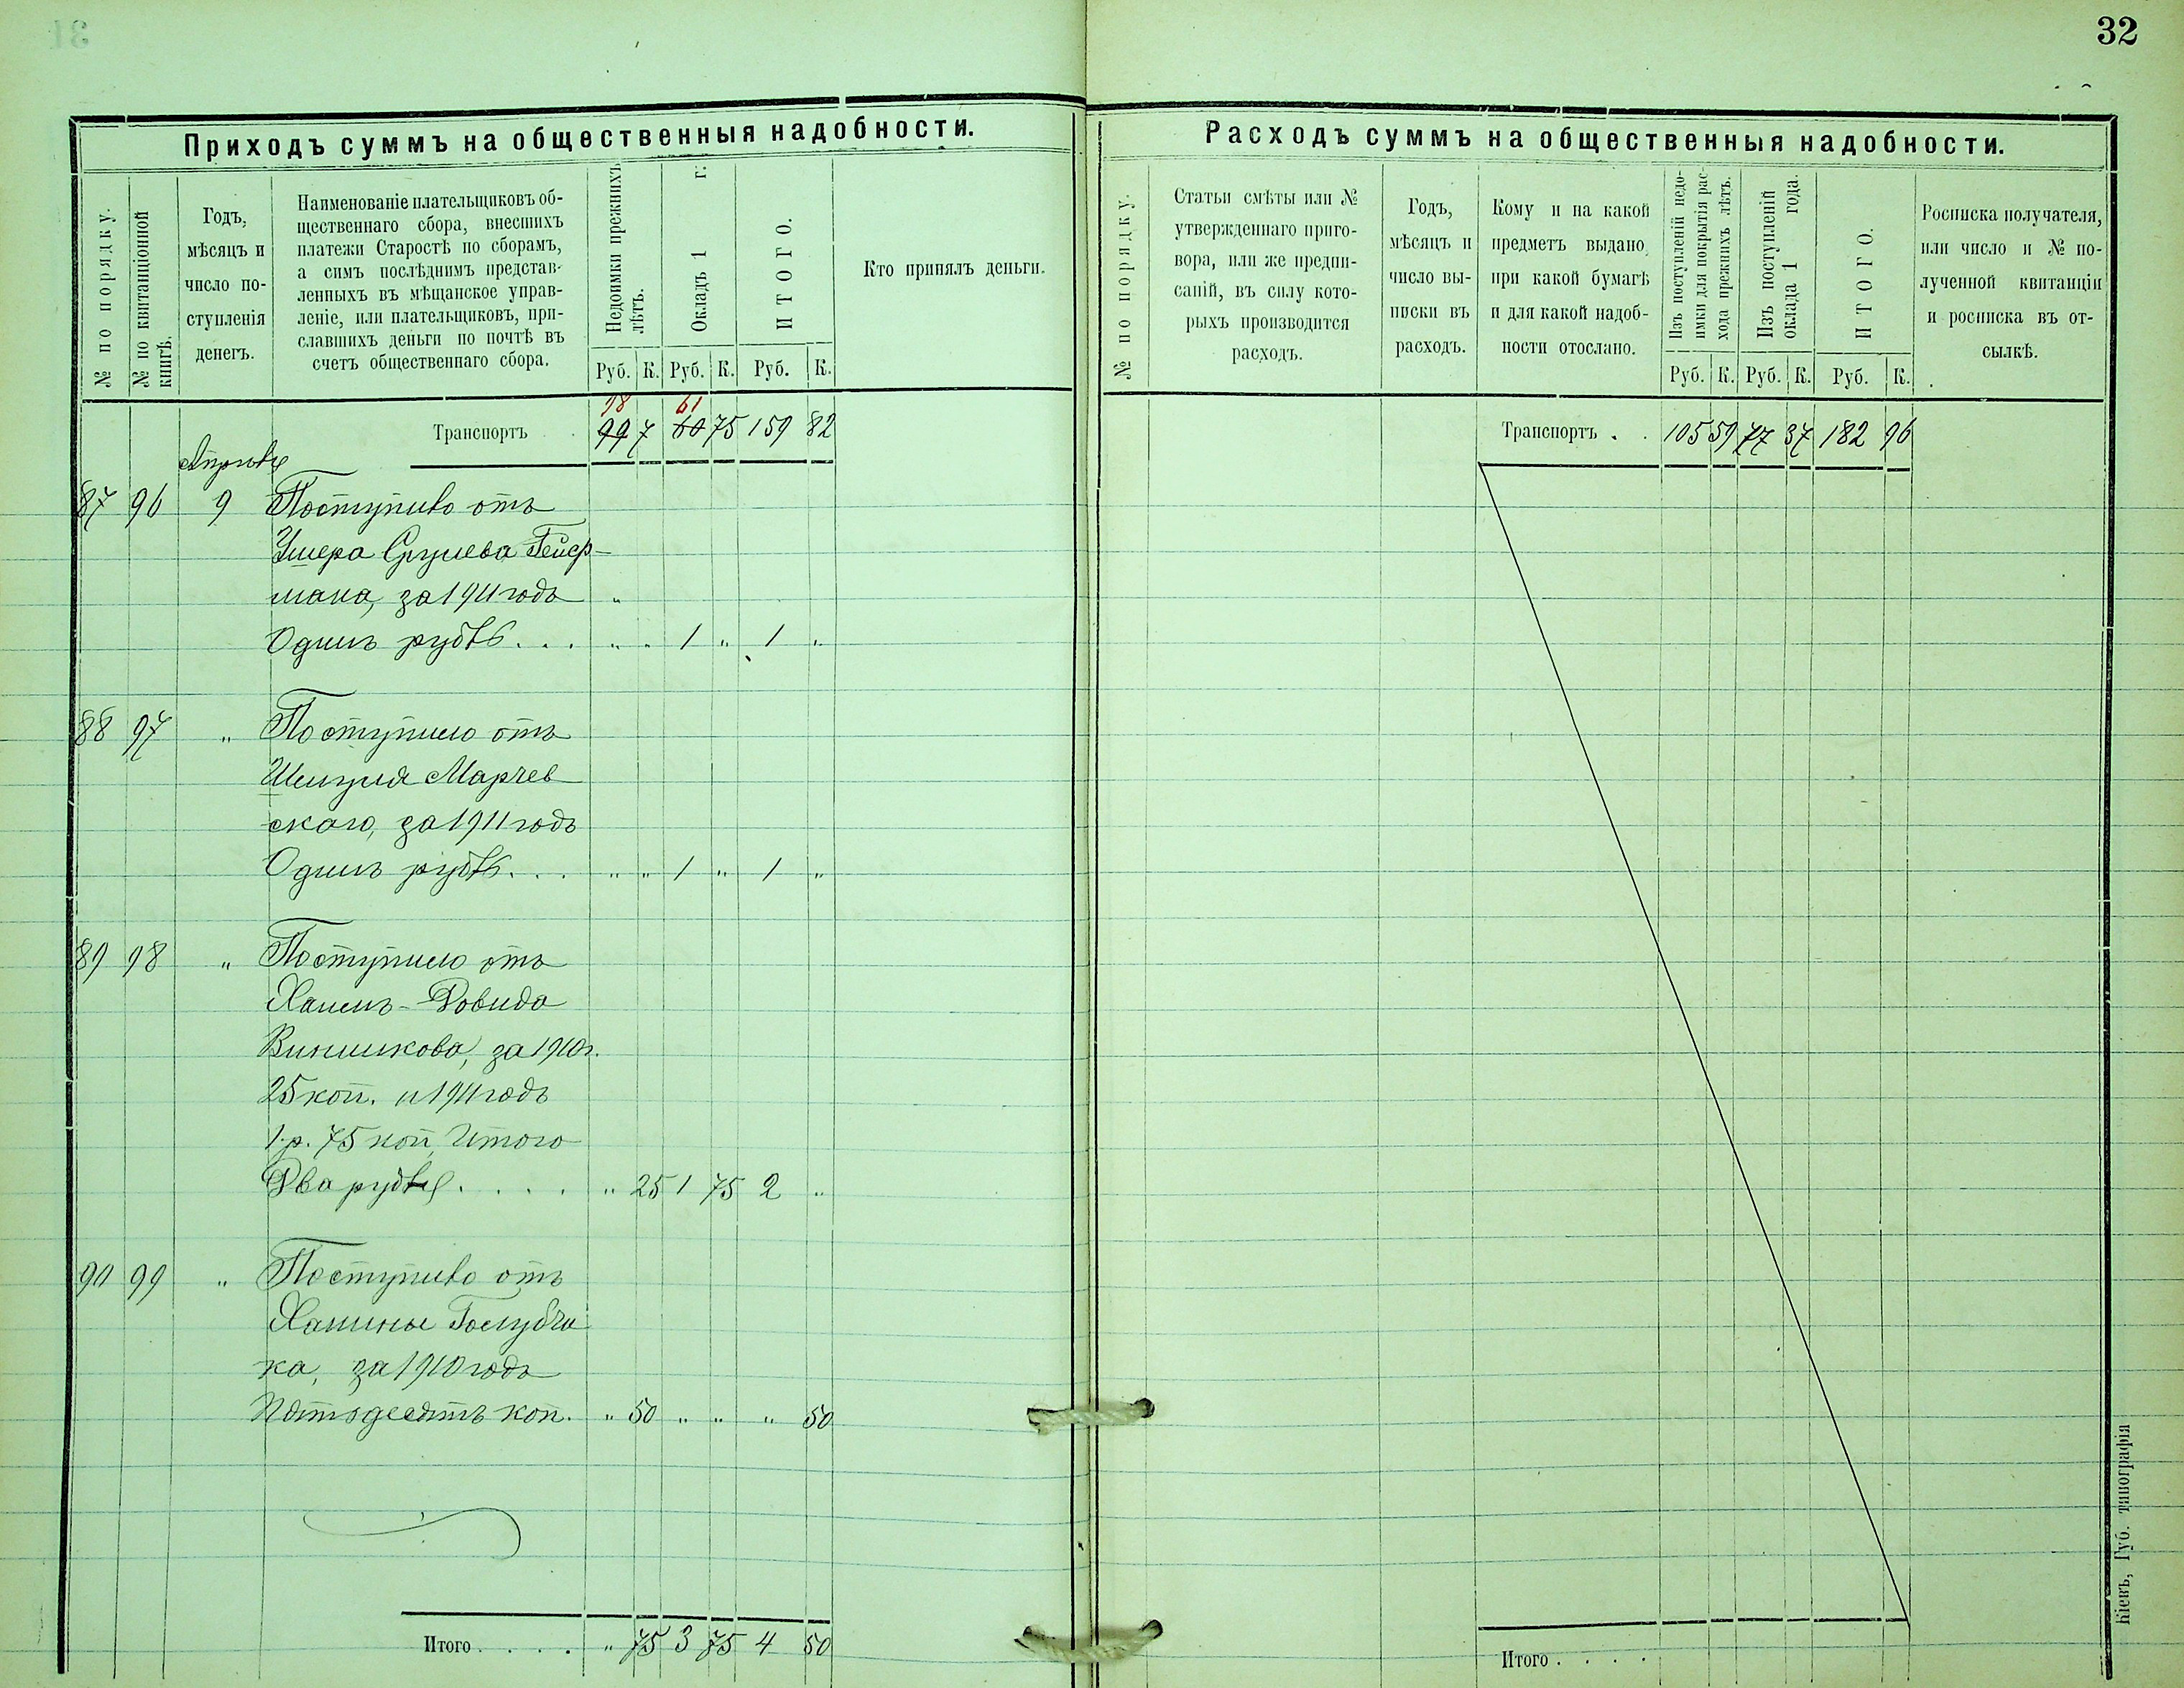 32
Приходъ суммъ на общественныя надобности.
№ по порядку.
№ по квитанціонной
книгѣ.
Годъ,
мѣсяцъ и
число по-
ступленія
денегъ.
Наименованіе плательщиковъ об-
щественнаго сбора, внесшихъ
платежи Старостѣ по сборамъ,
а симъ послѣднимъ представ-
ленныхъ въ мѣщанское управ-
леніе, или плательщиковъ, при-
славшихъ деньги по почтѣ въ
счетъ общественнаго сбора.
Недоимки прежнихъ
лѣтъ.
Окладъ 1 г.
ИТОГО.
Кто принялъ деньги.
Руб. К. Руб. К. Руб. К.
98 61
Транспортъ 99 7 60 75 159 82
Апрѣля
87 96 9 Поступило отъ
Ушера Срулева Гейер-
мана, за 1911 годъ "
Одинъ рубль . . . " " 1 " 1 "
88 97 " Поступило отъ
Шепселя Марчев
скаго, за 1911 годъ
Одинъ рубль . . . " " 1 " 1 "
89 98 " Поступило отъ
Хаимъ-Довида
Винникова, за 1910 г.
25 коп. и 1911 годъ
1 р. 75 коп, Итого
Два рубля . . . . " 25 1 75 2 "
90 99 " Поступило отъ
Хаимны Голубчи
ка, за 1910 годъ
Пятьдесятъ коп. " 50 " " " 50
Итого . . . . " 75 3 75 4 50
Расходъ суммъ на общественныя надобности.
№ по порядку.
Статьи смѣты или №
утвержденнаго приго-
вора, или же предпи-
саній, въ силу кото-
рыхъ производится
расходъ.
Годъ,
мѣсяцъ и
число вы-
писки въ
расходъ.
Кому и на какой
предметъ выдано,
при какой бумагѣ
и для какой надоб-
ности отослано.
Изъ поступленій недо-
имки для покрытія рас-
хода прежнихъ лѣтъ.
Изъ поступленій
оклада 1 года.
ИТОГО.
Росписка получателя,
или число и № по-
лученной квитанціи
и росписка въ от-
сылкѣ.
Руб. К. Руб. К. Руб. К.
Транспортъ . . 105 59 77 37 182 96
Итого . . . .
Кіевъ, Губ. типографія